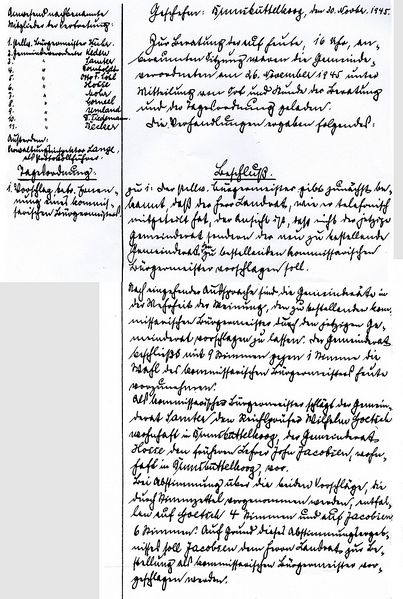 Anwesend nachbenannte
Mitglieder der Vertretung:
1. stellv. Bürgermeister
2. Gemeindeverordneter
3. " Lamcke
4. "
5. "
6. " Hoste
7. "
8. "
9. "
10. "
11. "
Außerdem:
Verwaltungsinspektor
als Protokollführer.
Tagesordnung:
1. Vorschlag betr. Ernen-
nung eines kommis-
sarischen Bürgermeisters.
Geschehen: Brunsbüttelkoog, den 30. Novbr. 1945.
Zur Beratung des auf heute, 16 Uhr, an-
beraumten Sitzung waren die Gemeinde-
verordneten am 26. November 1945 unter
Mitteilung von Ort und Stunde der Beratung
und der Tagesordnung geladen.
Die Verhandlungen ergaben folgendes:
Beschluß.
zu 1: der stellv. Bürgermeister gibt zunächst be-
kannt, daß der Herr Landrat, wie er telefonisch
mitgeteilt hat, der Ansicht ist, dass nicht der jetzige
Gemeinderat sondern der neu zu bestellende
Gemeinderat den zu bestellenden kommissarischen
Bürgermeister vorschlagen soll.
Nach eingehender Aussprache sind die Gemeinderäte in
der Mehrheit der Meinung, den zu bestellenden kom-
missarischen Bürgermeister durch den jetzigen Ge-
meinderat vorschlagen zu lassen. Der Gemeinderat
beschließt mit 9 Stimmen gegen 1 Stimme die
Wahl des kommissarischen Bürgermeisters heute
vorzunehmen.
Als kommissarischer Bürgermeister schlägt der Gemein-
derat Lamcke, den Wilhelm Goetsch
wohnhaft in Brunsbüttelkoog, der Gemeinderat
Hoste den früheren Lehrer John Jacobsen, wohn-
haft in Brunsbüttelkoog, vor.
Bei Abstimmung über die beiden Vorschläge, die
durch Stimmzettel vorgenommen werden, entfal-
len auf Goetsch 4 Stimmen und auf Jacobsen
6 Stimmen. Auf Grund dieses Abstimmungsergeb-
nisses soll Jacobsen dem Herrn Landrat zur Be-
stellung als kommissarischen Bürgermeister vor-
geschlagen werden.